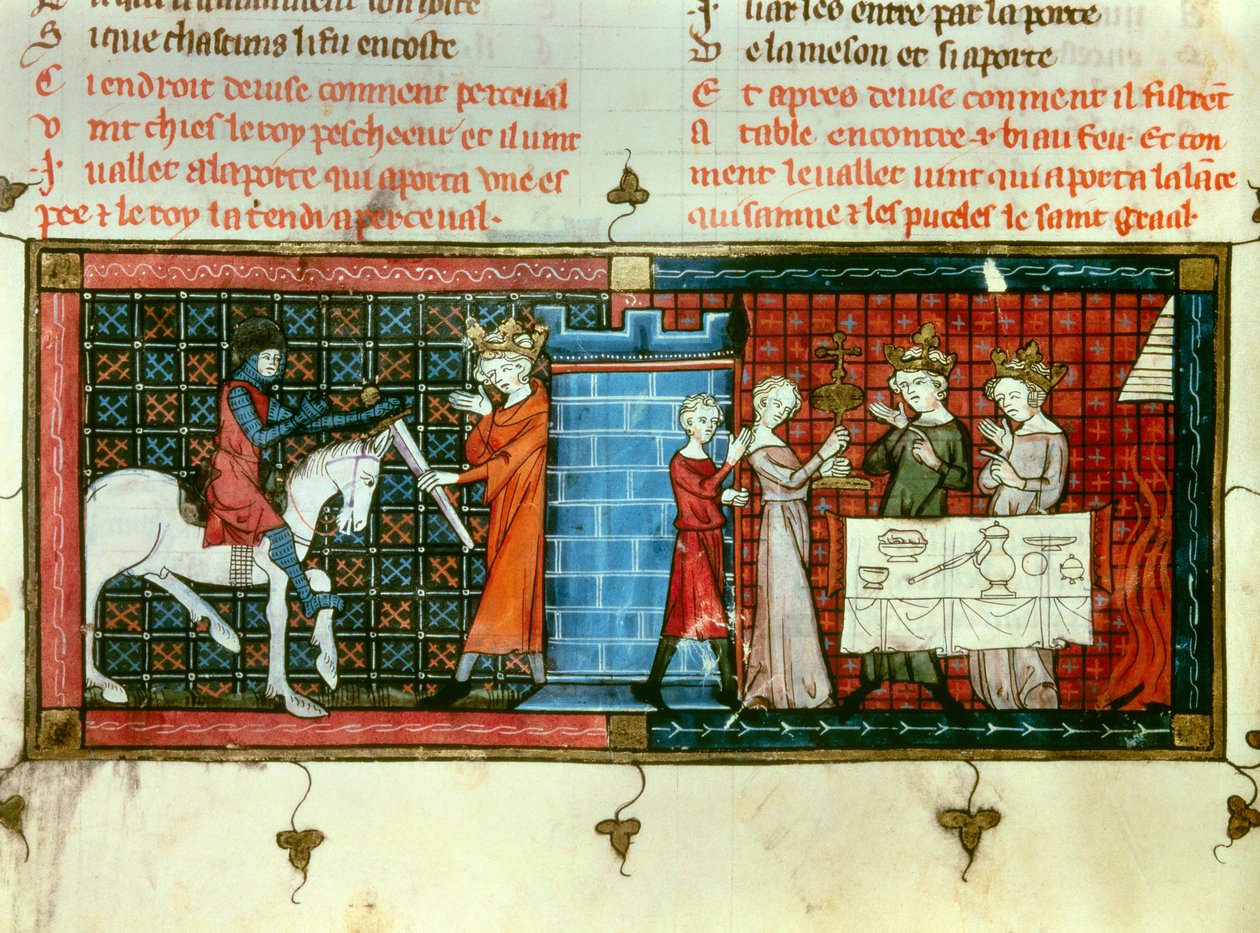 S i que chascuns li fu encoste
C i endroit deuise comment perceual
v int chies le roy pescheeur et il uint
.I. uallet a la porte qui aporta vne es
pee ⁊ le roy la tendi a perceual.
.I. uarles entre par la porte
D e la meson et si aporte
E t apres deuise comment il sistrēt
A table encontre .I. biau feu. Et com
ment le uallet uint qui aporta la lāce
qui sainne ⁊ les puceles le saint graal.